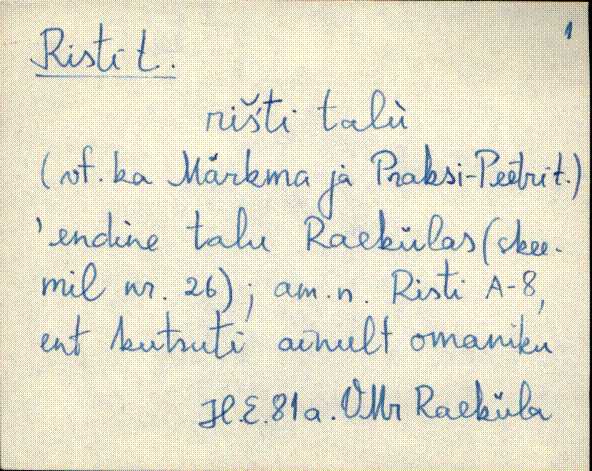 1
Risti t.
rišti talù
(vt. ka Märkma ja Praksi-Peetri t.)
'endine talu Raekülas (skee-
mil nr. 26); am.n. Risti A-8,
ent kutsuti ainult omaniku
H.E. 81a. VMr Raeküla